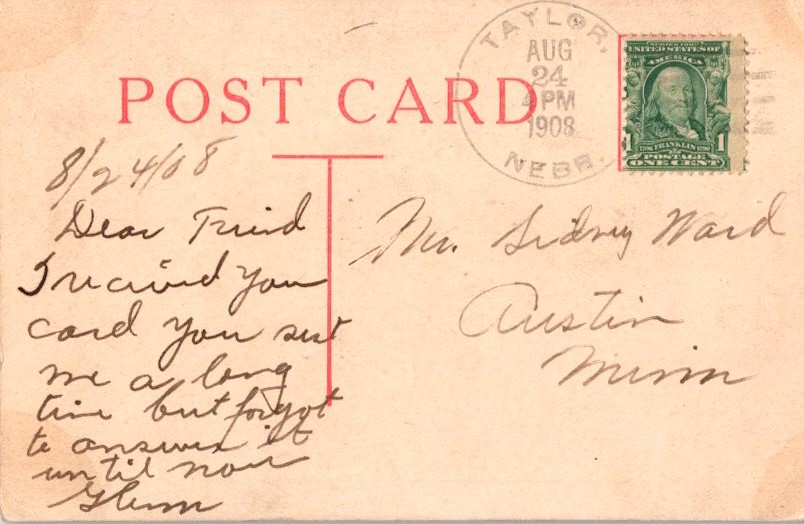 TAYLOR,
AUG
24
4 PM
1908
NEBR.
SERIES 1902
UNITED STATES OF
AMERICA
1706 FRANKLIN 1790
1 POSTAGE 1
ONE CENT
POST CARD
8/24/08
Dear Friend
I received you
card you sent
me a long
time but forgot
to answer it
until now
Glenn
Mr. Sidney Ward
Austin
Minn